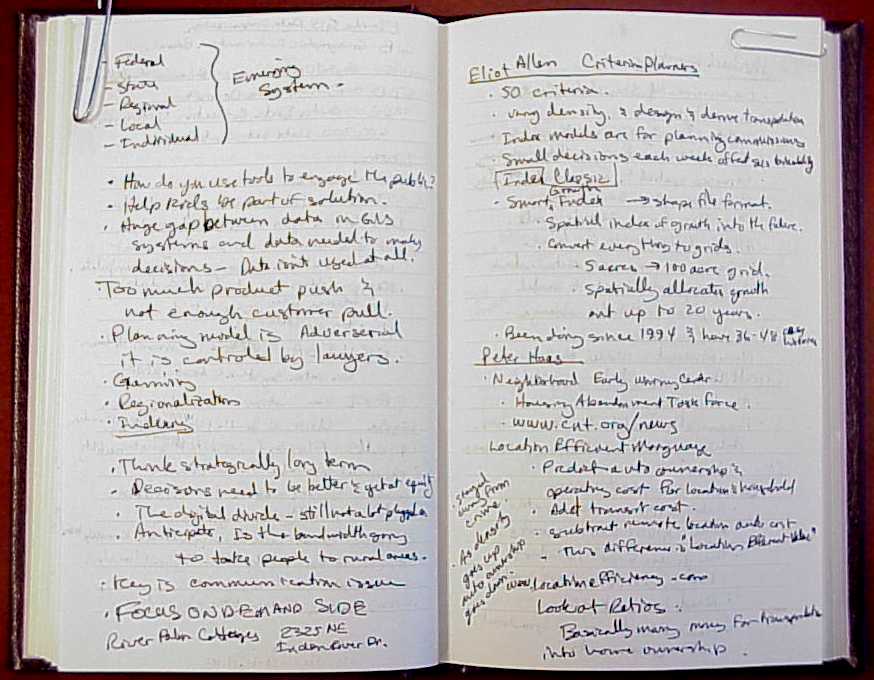 - Federal
- State
- Regional
- Local
- Individual
Emerging
System -
· How do you use tools to engage the public?
· Help Kids be part of solution.
· Huge gap between data in GIS
systems and data needed to make
decisions - Data isn't used at all.
Too much product push &
not enough customer pull.
· Planning model is Adverserial
it is controled by lawyers.
· Gaming
· Regionalization
· Indexing
· Think strategically long term
· Decisions need to be better & get at equity
· The digital divide - still not a lot
· Anticipate, Is the bandwidth going
to take people to rural areas.
· Key is communication issue
· FOCUS ON DEMAND SIDE
River Palm Cottages 2325 NE
Indian River Dr.
Eliot Allen Criterion Planners
· 50 criteria.
· using density, & design & derive transportation
· Index models are for planning commissions
· Small decisions each week affect
Index Classic
· Smart Growth Index → shape file format.
· Spatial index of growth into the future.
· Convert everything to grids.
· 5 acres → 100 acre grid.
· Spatially allocates growth
out up to 20 years.
· Been doing since 1994 & have 36-48
Peter Haas
· Neighborhood Early Warning Center
· Housing Abandonment Task Force.
· www.cnt.org/news
Location Efficient Mortguage
· Predict auto ownership &
operating cost for location & household
· Add transit cost.
· subtract remote location auto cost
- This difference is "Location Efficient Value"
www.locationefficiency.com
Look at Ratios.
Basically moving money for transportation
into home ownership.
stayed
away from
crime.
· As density
goes up
auto ownership
goes down.